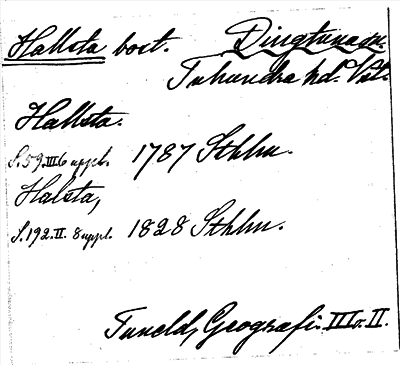 Hallsta bost. Dingtuna sn.
Tuhundra hd. Vstm.
Hallsta.
S. 59. III 6 uppl. 1787 Sthlm.
Halsta,
S. 192. II. 8 uppl. 1828 Sthlm.
Tuneld, Geografi. III o. II.